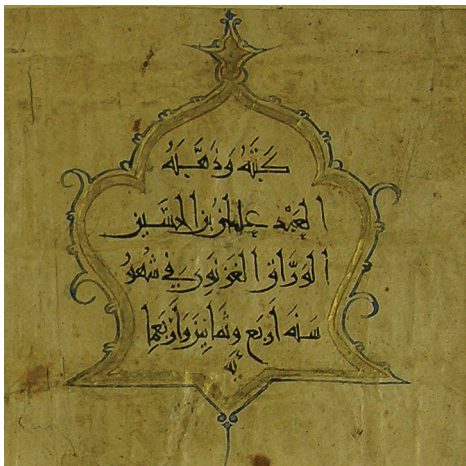 كَتَبَهُ وَذَهَّبَهُ
العَبْد عثمن بن الحسين
الورّاق الغزنوي في شهور
سنه اربع وثمانين واربعما
ئه